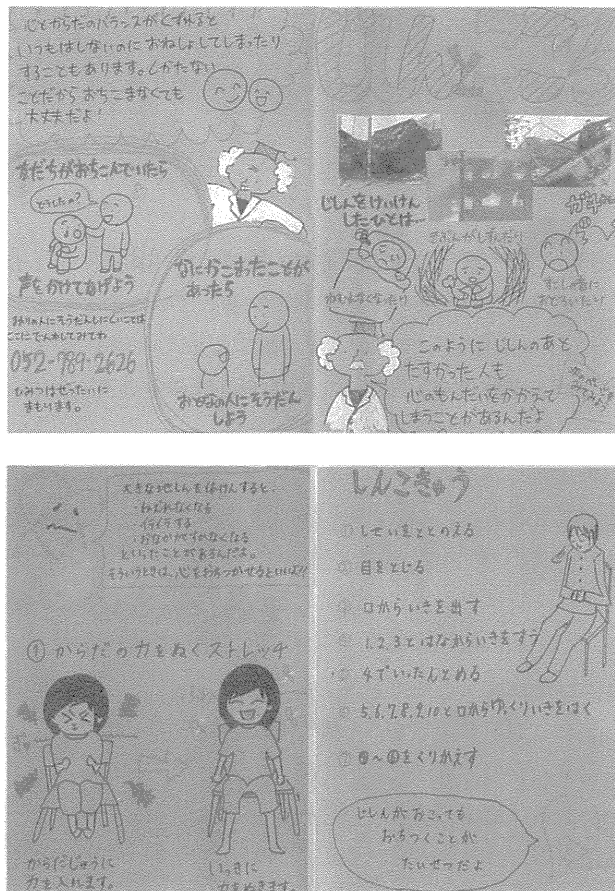 心とからだのバランスがくずれると
いつもはしないのにおねしょしてしまったり
することもあります。しかたない
ことだからおちこまなくても
大丈夫だよ!
友だちがおちこんでいたら
どうしたの?
声をかけてあげよう
まわりの人にそうだんしにくいときは
ここにでんわしてみてね
052-789-2626
ひみつはぜったいに
まもります。
なにかこまったことが
あったら
おとなの人にそうだん
しよう
じしんをけいけん
したひとは…
ねむれなくなったり
きおんがしずんだり
すこしの音に
おどろいたり
このように じしんのあと
たすかった人も
心のもんだいをかかえて
しまうことがあるんだよ
大きな地しんをけいけんすると…
・ねむれなくなる
・イライラする
・おなかがすかなくなる
といったことがあるんだよ。
そういうときは、心をおちつかせるといいよ!!
①からだの力をぬくストレッチ
からだじゅうに
力を入れます。
いっきに
力をぬきます。
しんこきゅう
① しせいをととのえる
② 目をとじる
③ 口からいきを出す
④ 1,2,3とはなからいきをすう
⑤ 4でいったんとめる
⑥ 5,6,7,8,9,10と口からゆっくりいきをはく
⑦ ④~⑥をくりかえす
じしんがおこっても
おちつくことが
たいせつだよ